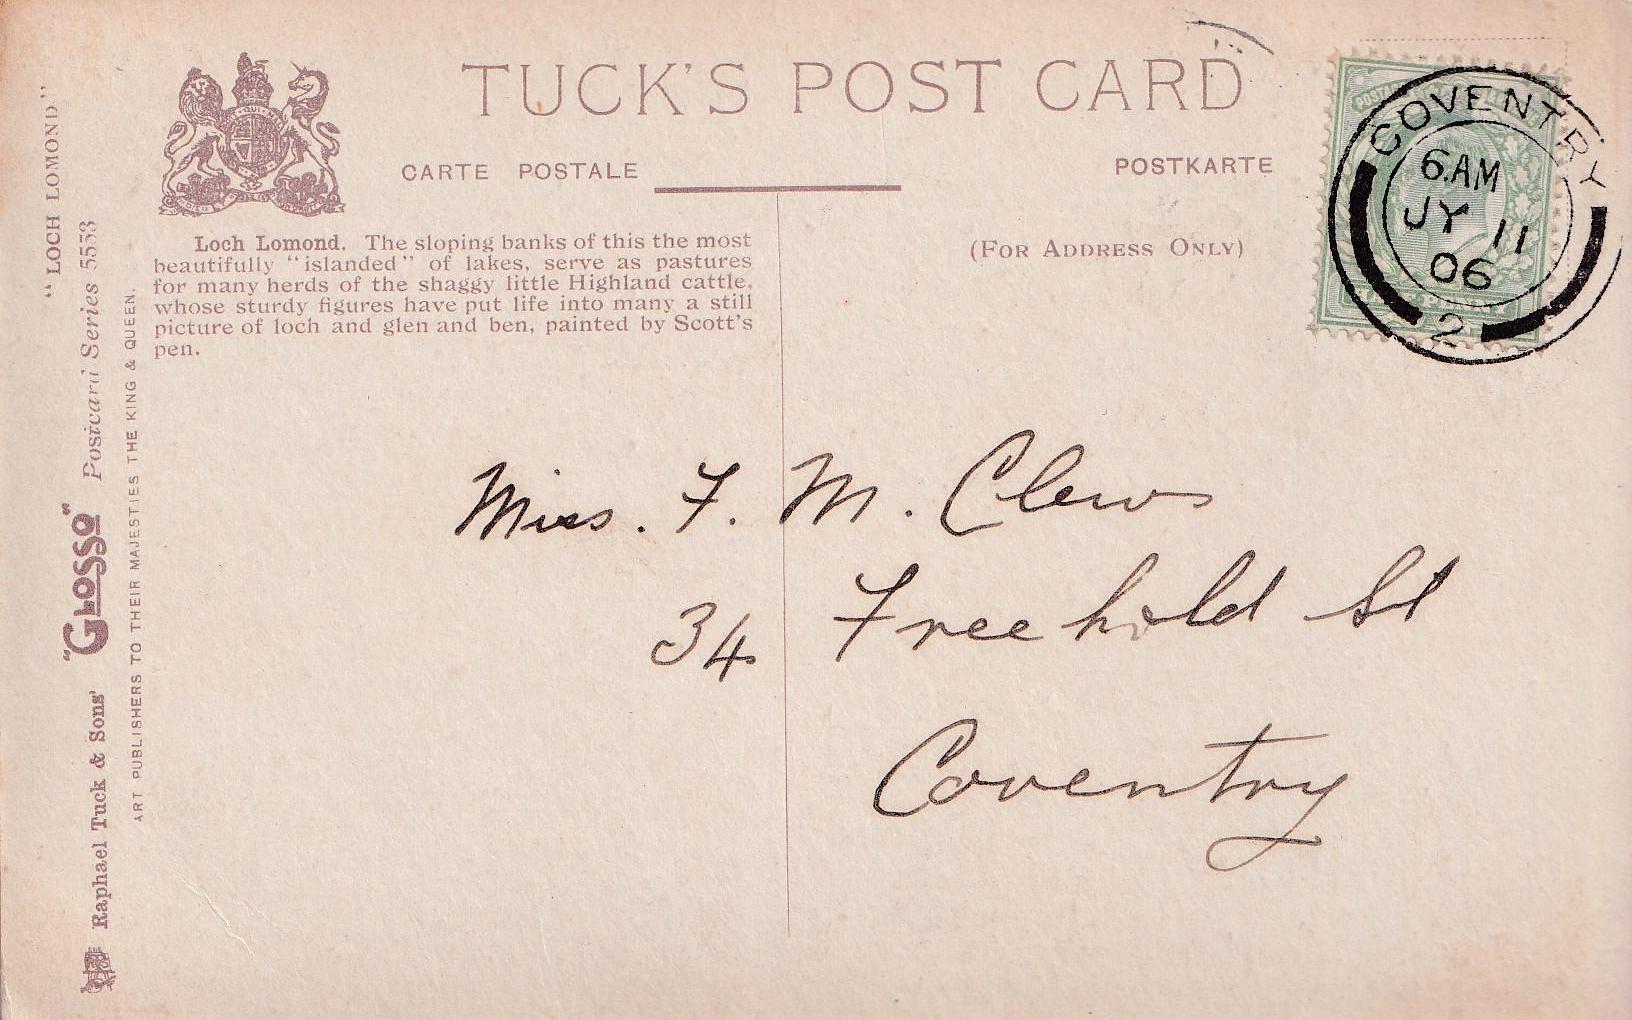 TUCK'S POST CARD
CARTE POSTALE
POSTKARTE
(FOR ADDRESS ONLY)
Loch Lomond. The sloping banks of this the most
beautifully "islanded" of lakes, serve as pastures
for many herds of the shaggy little Highland cattle,
whose sturdy figures have put life into many a still
picture of loch and glen and ben, painted by Scott's
pen.
COVENTRY
6.AM
JY 11
06
2
Miss. F. M. Clews
34 Freehold St
Coventry
"LOCH LOMOND"
Raphael Tuck & Sons' "GLOSSO" Postcard Series 5553
ART PUBLISHERS TO THEIR MAJESTIES THE KING & QUEEN.